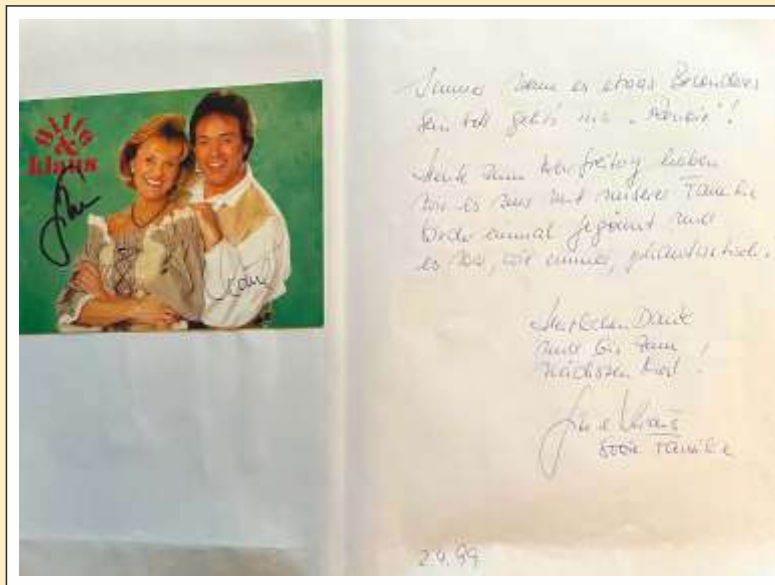 Gitte
&
Klaus
Immer wenn es etwas Besonderes
sein soll geht's ins
Heute zum Karfreitag haben
wir es uns mit unserer Familie
wieder einmal gegönnt und
es war, wie immer, phantastisch.
Herzlichen Dank
und bis zum
nächsten Mal!
Klaus
sowie Familie
2.4.99